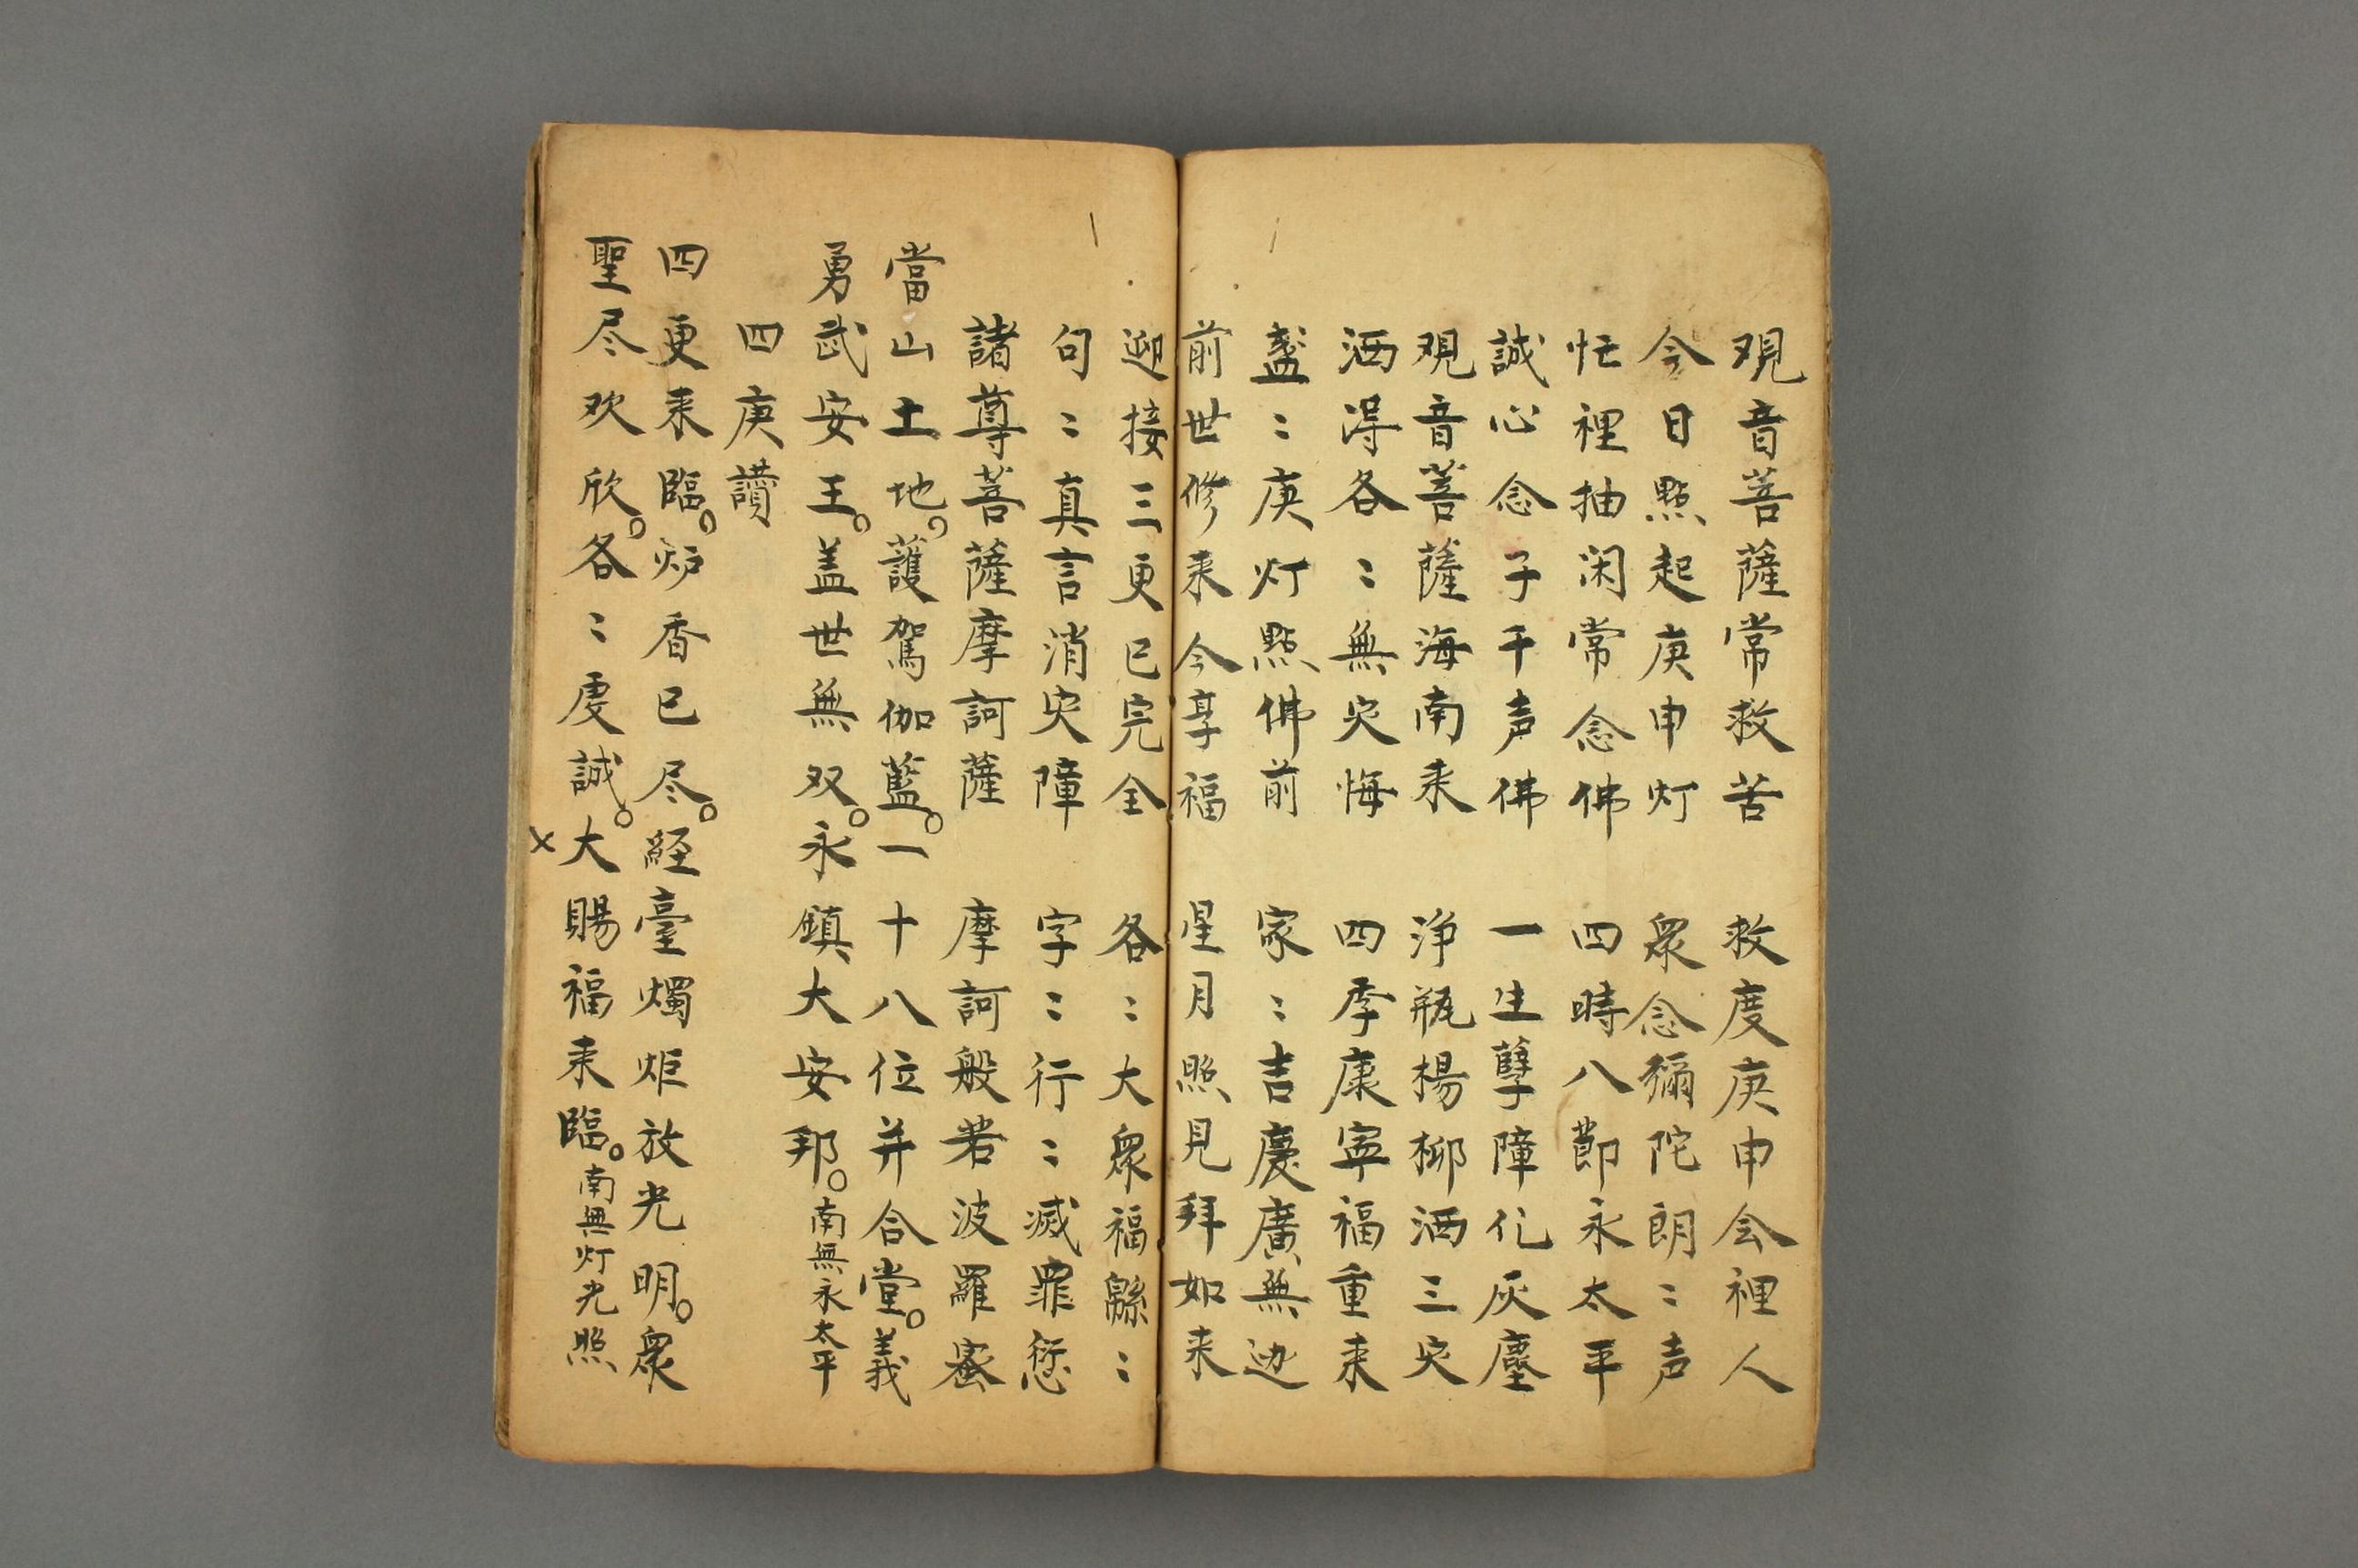 观音菩薩常救苦　救度庚申会裡人
今日㸃起庚申灯　衆念彌陀朗〻声
忙裡抽闲常念佛　四時八節永太平
誠心念子千声佛　一生孽障化灰塵
观音菩薩海南来　浄瓶楊柳洒三灾
洒淂各〻無灾悔　四季康寧福重来
盞〻庚灯㸃佛前　家〻吉慶廣無边
前世修来今享福　星月照見拜如来
迎接三更已完全　各〻大衆福緜〻
句〻真言消灾障　字〻行〻滅罪愆
諸尊菩薩摩訶薩　摩訶般若波羅蜜
當山土地。護駕伽藍。一十八位并合堂。義
勇武安王。盖世無双。永鎮大安邦。南無永太平
四庚讚
四更来臨。炉香已尽。経臺燭炬放光明。衆
聖尽欢欣。各〻虔誠。大賜福来臨。南無灯光照